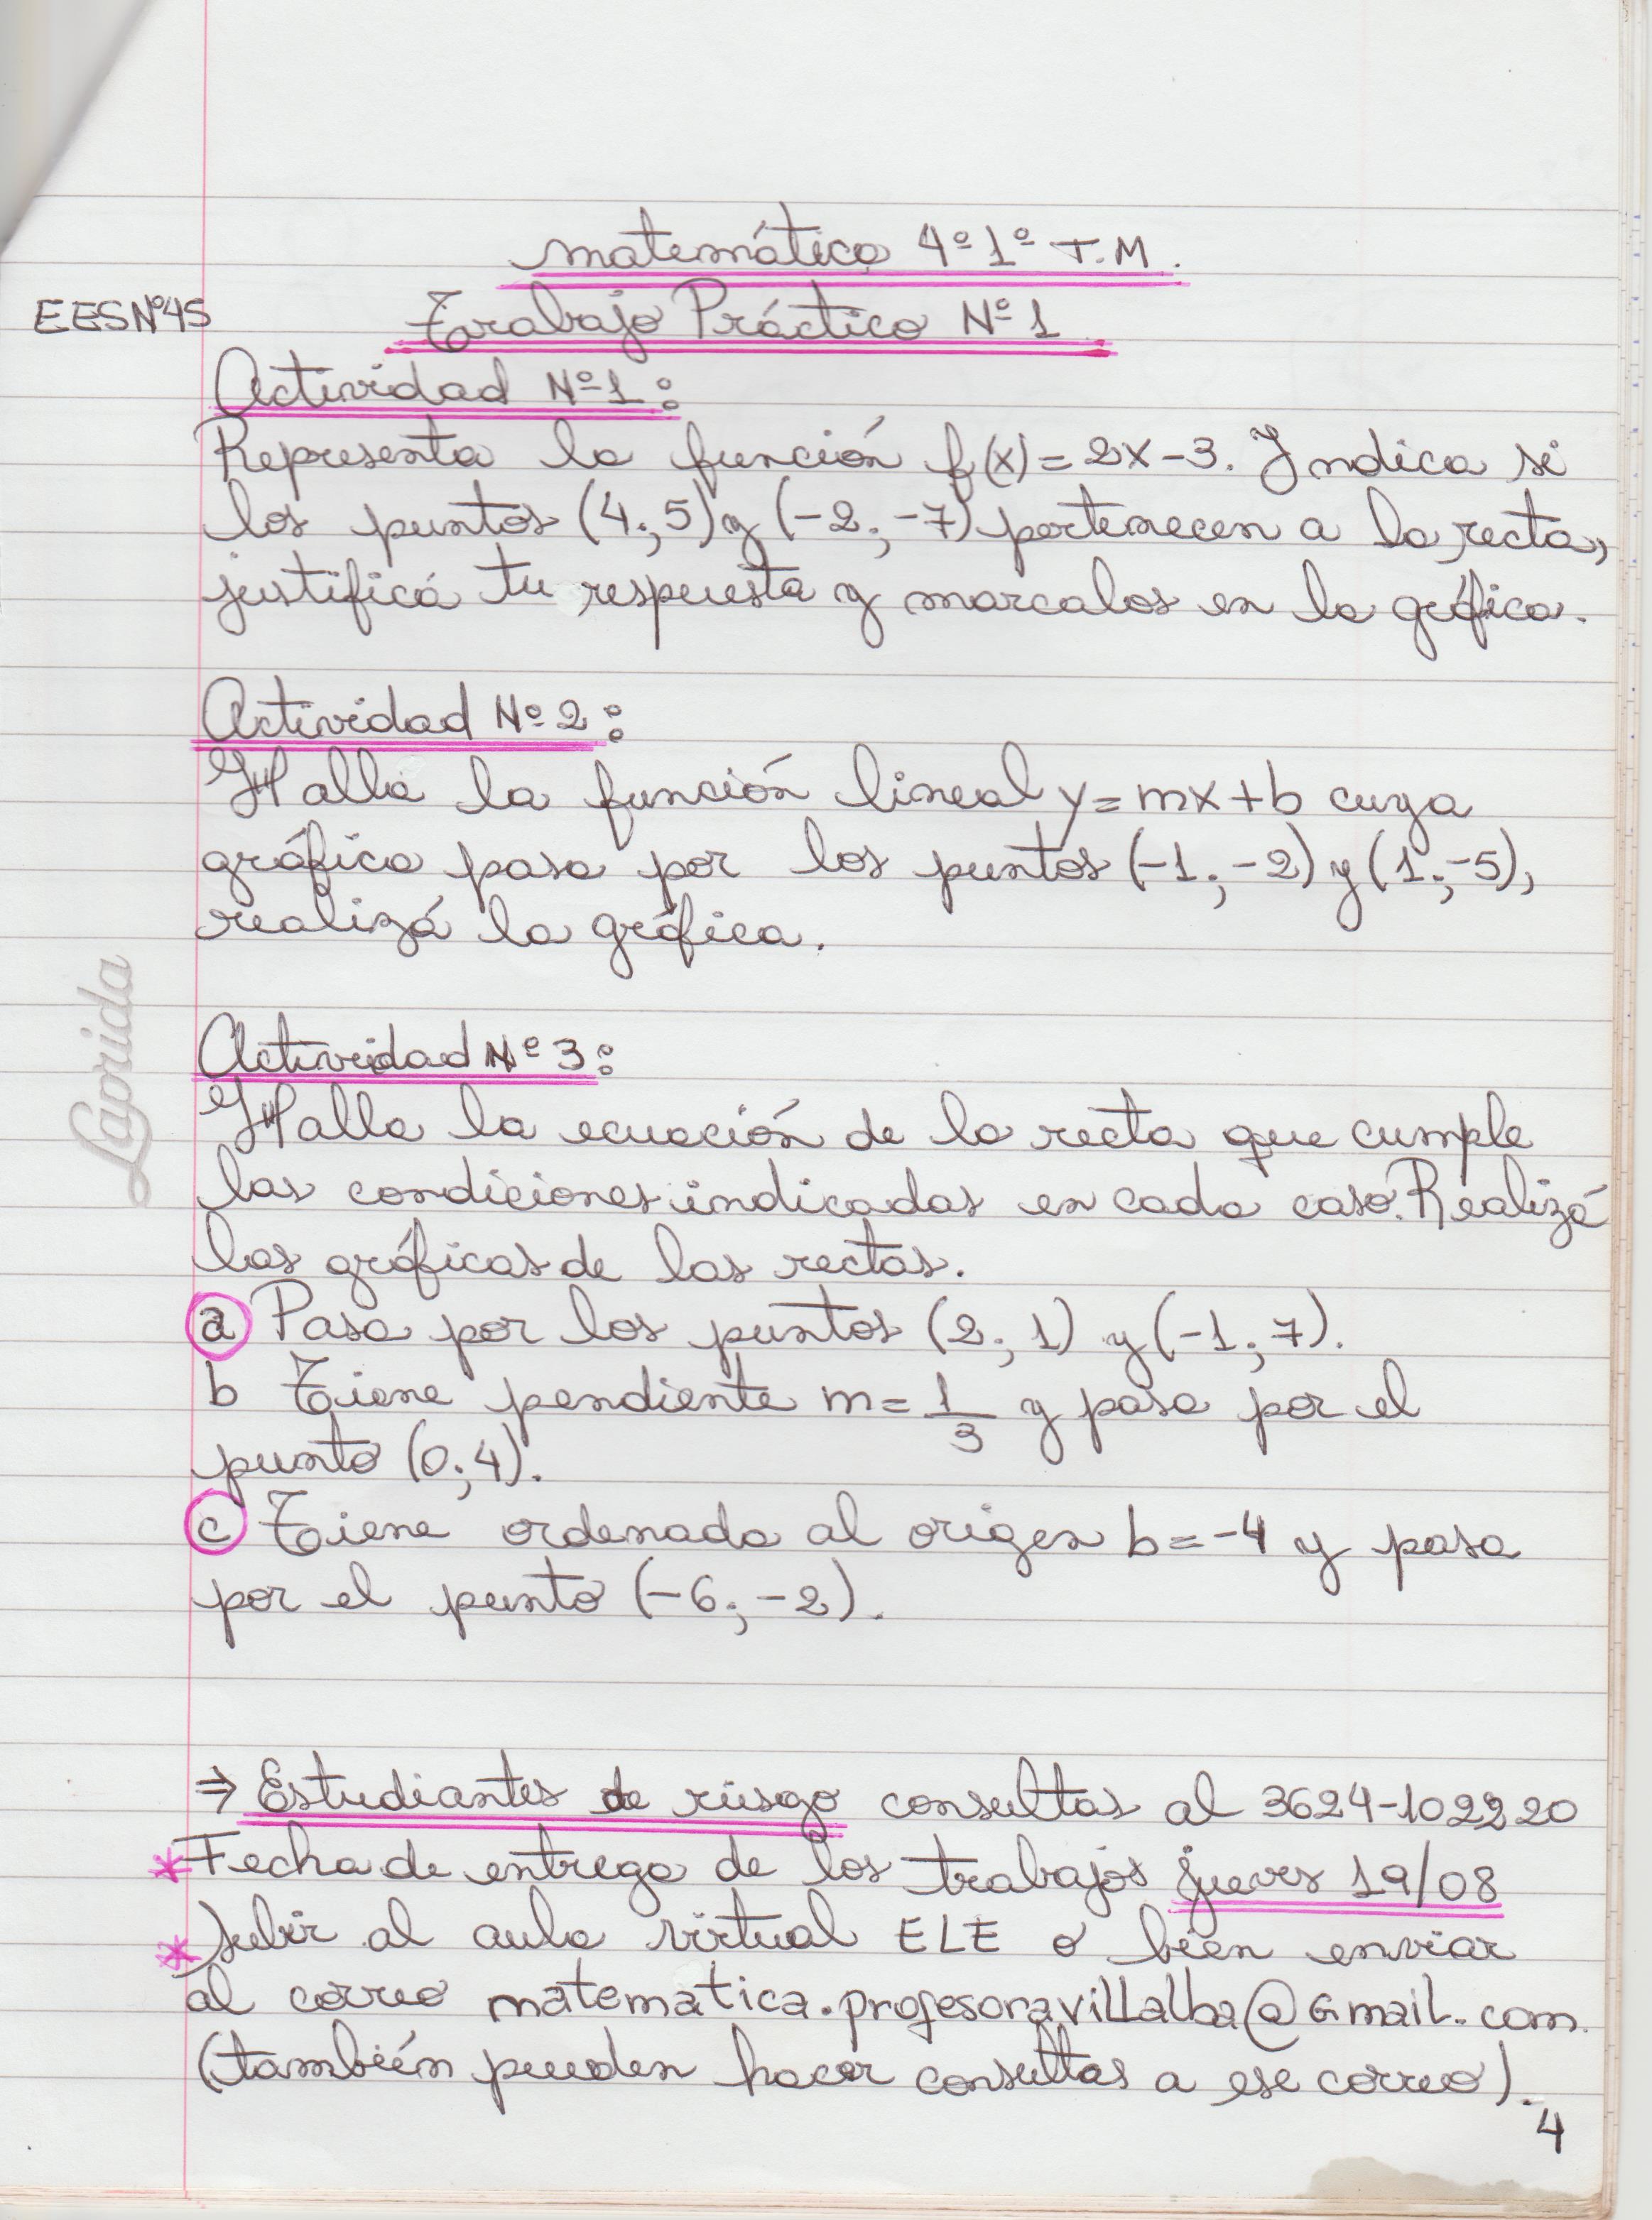 matemática 4º 1º T.M.
EES Nº 45
Trabajo Práctico Nº 1
Actividad Nº 1:
Representa la función f(x) = 2x - 3. Indica si
los puntos (4; 5) y (-2; -7) pertenecen a la recta,
justificá tu respuesta y marcalos en la gráfica.
Actividad Nº 2:
Halla la función lineal y = mx + b cuya
gráfica pasa por los puntos (-1; -2) y (1; -5),
realizá la gráfica.
Actividad Nº 3:
Halla la ecuación de la recta que cumple
las condiciones indicadas en cada caso. Realizá
las gráficas de las rectas.
a Pasa por los puntos (2; 1) y (-1; 7).
b Tiene pendiente m = 1/3 y pasa por el
punto (0; 4).
c Tiene ordenada al origen b = -4 y pasa
por el punto (-6; -2).
⇒ Estudiantes de riesgo consultas al 3624-102220
* Fecha de entrega de los trabajos jueves 19/08
* Subir al aula virtual ELE o bien enviar
al correo matematica.profesoravillalba@Gmail.com.
(también pueden hacer consultas a ese correo).
4
Laprida